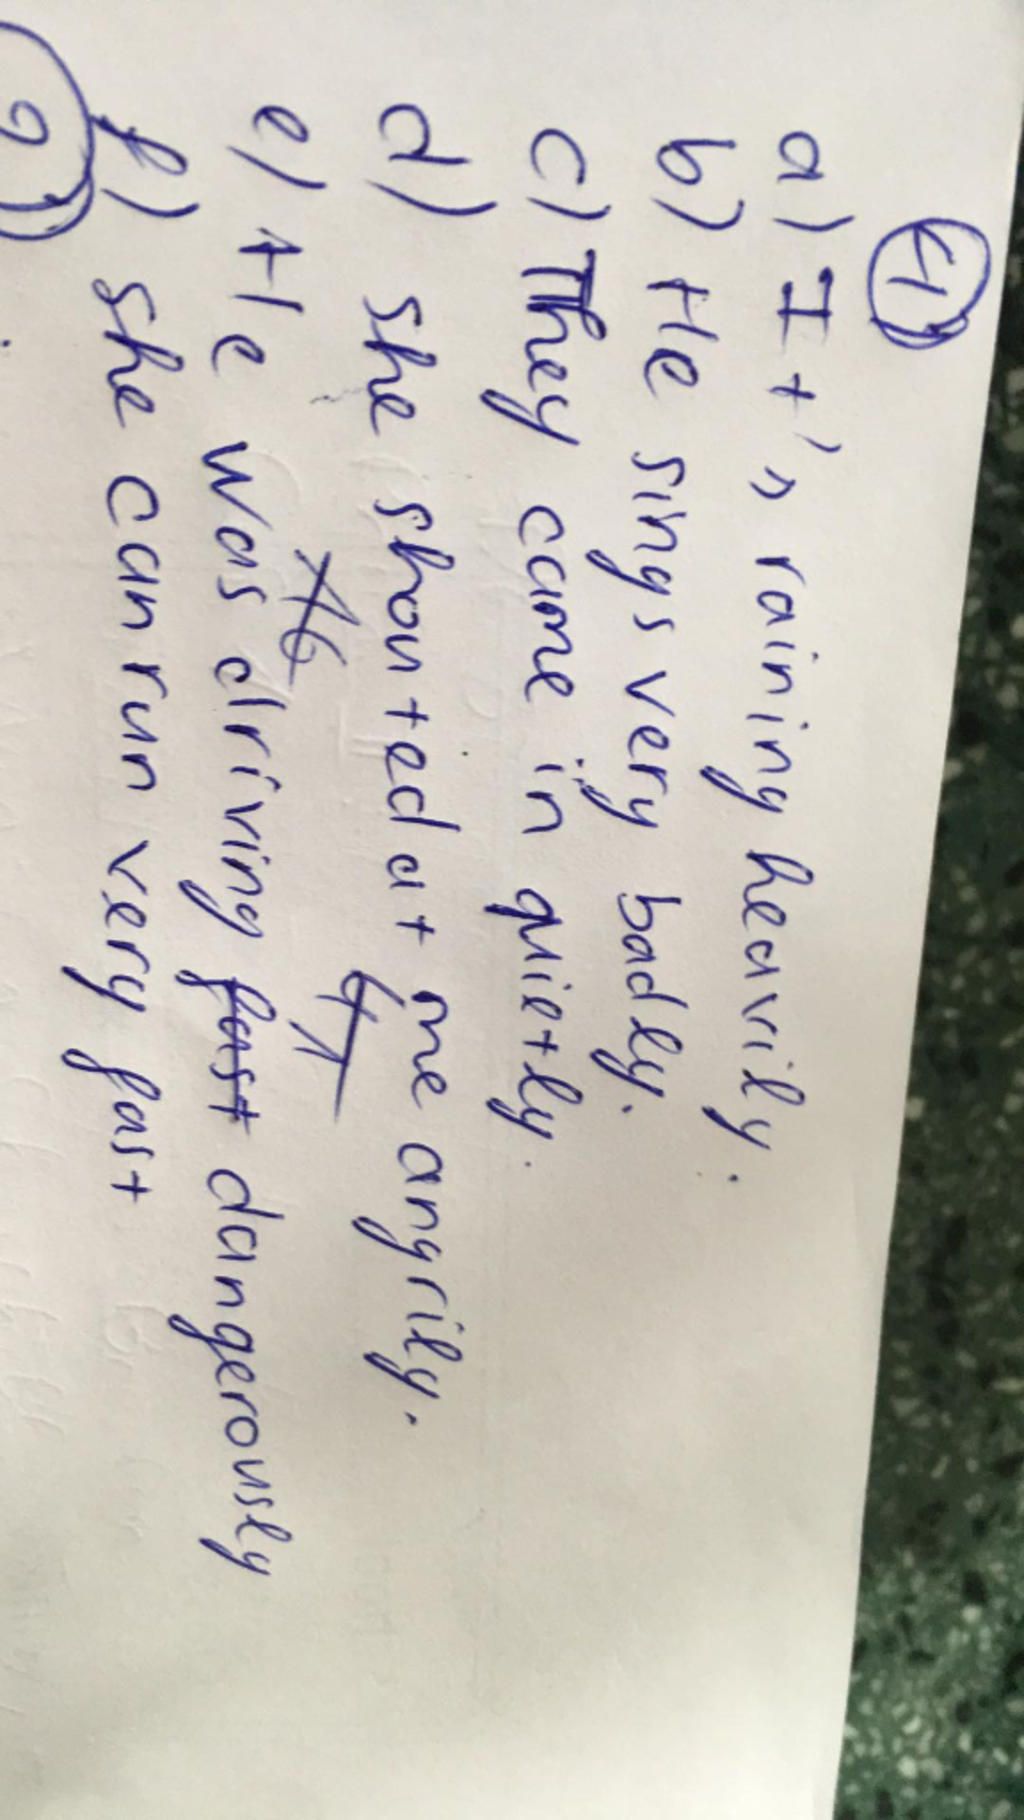 1)
a) It's raining heavily.
b) He sings very badly.
c) They came in quietly.
d) she shouted at me angrily.
e) He was driving fast dangerously
f) she can run very fast